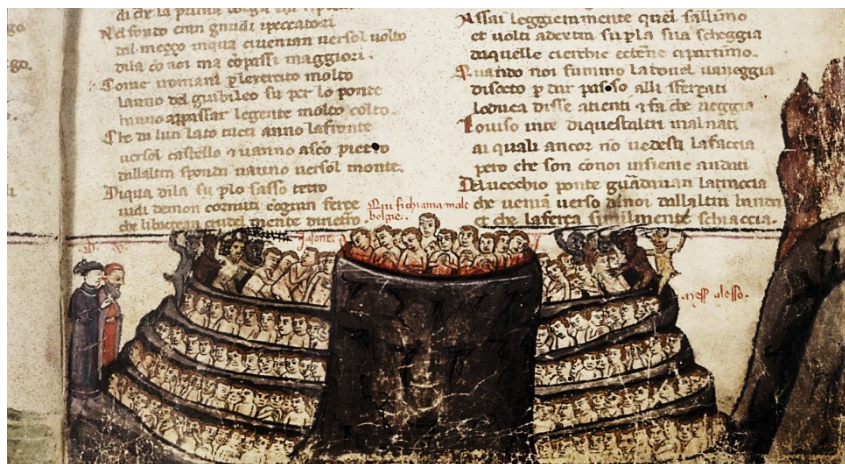 di che la prima
Nel fondo eran gnudi ipeccatori
dal mezzo inqua civenian versol volto
dila co noi ma co passi maggiori.
Come iromani p lexercito molto
lanno del giubileo su per lo ponte
hanno appassar legente molto colto.
Che da lun lato tucti anno lafronte
versol castello e vanno asco pietro
dallaltra sponda vanno versol monte.
Diqua dila su plo sasso tetro
vidi demon cornuti cogran ferce
che libactean crudel mente diretro
Assai leggieramente quel sallimo
et volti adextra su pla sua scheggia
daquelle cierchie ectene cipartimo.
Quando noi fummo la dovel vaneggia
disocto p dar passo alli sferzati
loduca disse atienti e fa che veggia
Loviso inte diquestaltri malnati
ai quali ancor no vedesti lafaccia
pero che son conoi insieme andati
Del vecchio ponte guardavan latraccia
che venia verso di noi dallaltra banda
et che laferça similmente schiaccia.
Qui si chiama male
bolgie.
Jasone.
mess alesso.